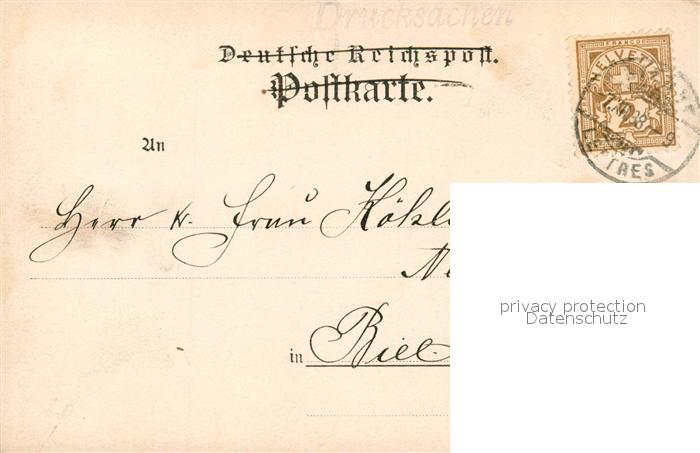 Drucksachen
Deutsche Reichspost.
Postkarte.
FRANCO
HELVETIA
2
LETTRES
An
Herr u. Frau
in Biel
privacy protection
Datenschutz